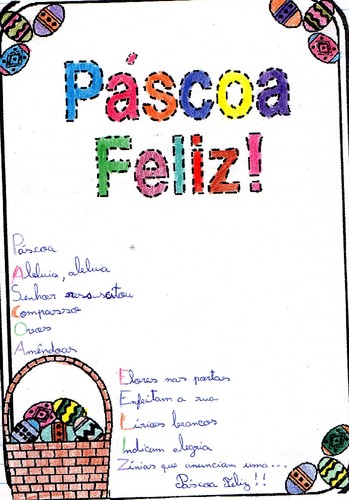 Páscoa
Feliz!
Páscoa
Aleluia, aleluia
Senhor ressuscitou
Compasso
Ovos
Amêndoas
Flores nas portas
Enfeitam a rua
Lírios brancos
Indicam alegria
Zínias que anunciam uma...
Páscoa Feliz!!